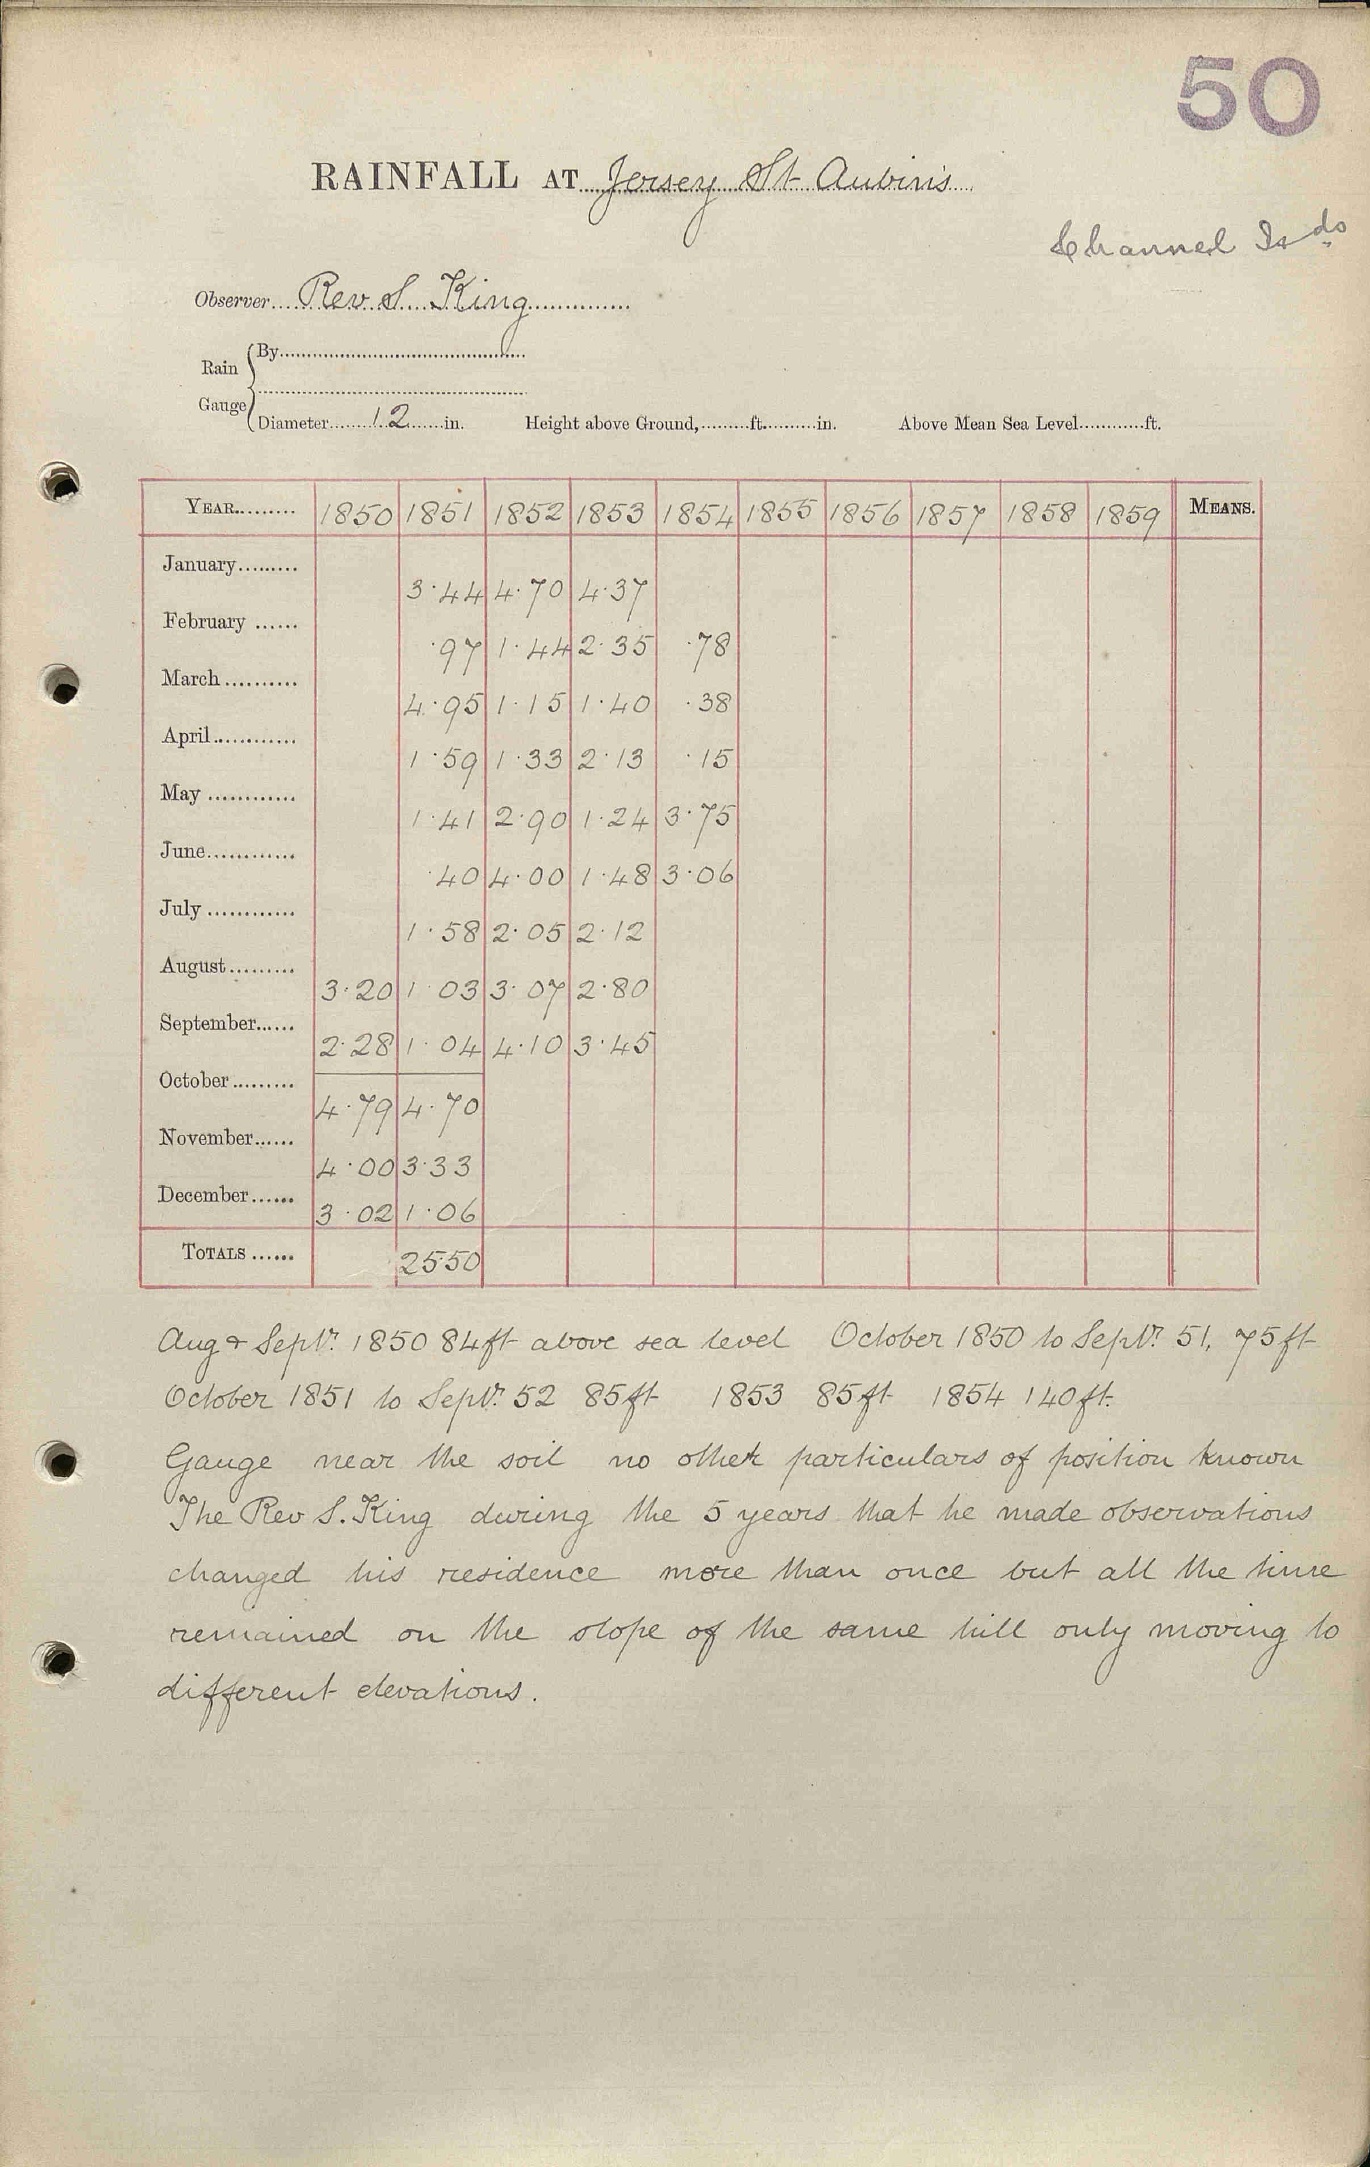 50
RAINFALL AT Jersey St Aubin's
Channel Isds
Observer Rev S King
Rain Gauge
By
Diameter 12 in. Height above Ground, ft. in. Above Mean Sea Level ft.
YEAR 1850 1851 1852 1853 1854 1855 1856 1857 1858 1859 MEANS.
January 3.44 4.70 4.37
February .97 1.44 2.35 .78
March 4.95 1.15 1.40 .38
April 1.59 1.33 2.13 .15
May 1.41 2.90 1.24 3.75
June .40 4.00 1.48 3.06
July 1.58 2.05 2.12
August 3.20 1.03 3.07 2.80
September 2.28 1.04 4.10 3.45
October 4.79 4.70
November 4.00 3.33
December 3.02 1.06
TOTALS 25.50
Aug & Septr. 1850 84ft above sea level October 1850 to Septr. 51, 75ft
October 1851 to Septr. 52 85ft 1853 85ft 1854 140ft.
Gauge near the soil no other particulars of position known
The Rev S. King during the 5 years that he made observations
changed his residence more than once but all the time
remained on the slope of the same hill only moving to
different elevations.